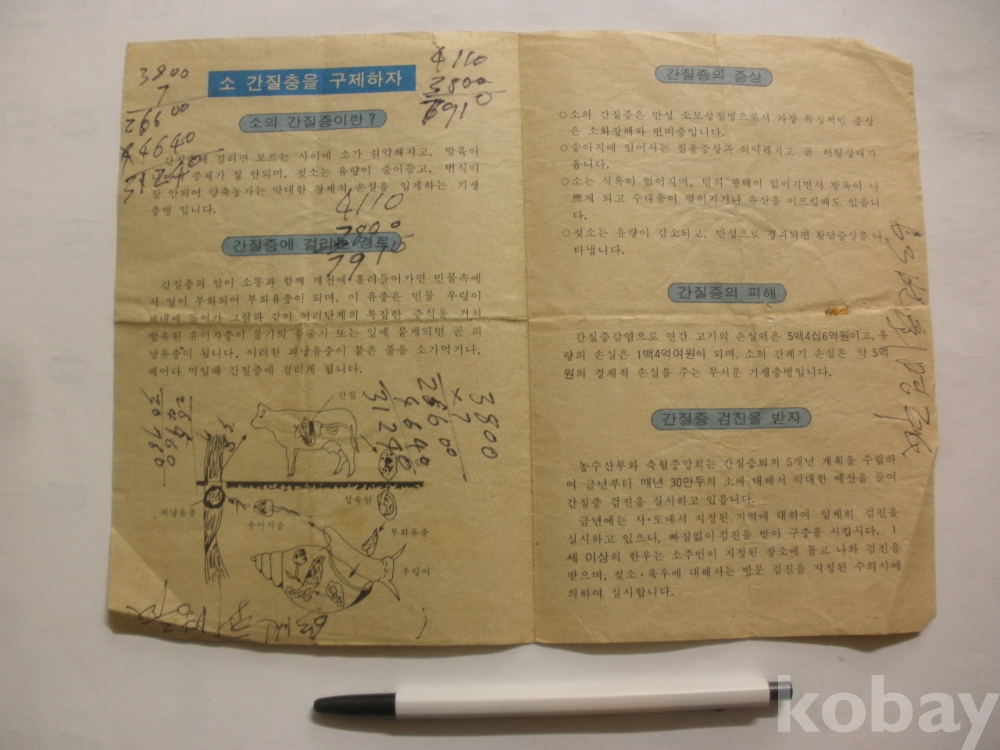 소 간질충을 구제하자
소의 간질증이란?
간질증에 걸리면 모르는 사이에 소가 쇠약해지고, 발육이
증체가 잘 안되며, 젖소는 유량이 줄어들고, 번식이
잘 안되어 양축농가는 막대한 경제적 손실을 입게하는 기생
충병 입니다.
간질증에 걸리는 경로
간질충의 알이 소똥과 함께 개천에 흘러들어가면 민물속에
서 알이 부화되어 부화유충이 되며, 이 유충은 민물 우렁이
체내에 들어가 그림과 같이 여러단계의 복잡한 증식을 거쳐
발육된 유미자충이 물가의 풀줄기 또는 잎에 붙게되면 곧 피
낭유충이 됩니다. 이러한 피낭유충이 붙은 풀을 소가먹거나,
베어다 먹일때 간질충에 걸리게 됩니다.
간질
피낭유충
유미자충
성숙란
부화유충
우렁이
3800
7
26600
4640
31240
4110
3800
7910
4110
3800
7910
3800
×7
26600
4640
31240
간질증의 증상
○소의 간질증은 만성 소모성질병으로서 가장 특징적인 증상
은 소화장해와 변비증입니다.
○송아지에 있어서는 침울증상과 허약해지고 곧 허탈상태가
옵니다.
○소는 식욕이 없어지며, 털의 광택이 없어지면서 발육이 나
쁘게 되고 수태율이 떨어지거나 유산을 이르킬때도 있읍니
다.
○젖소는 유량이 감소되고, 만성으로 경과되면 황달증상을 나
타냅니다.
간질증의 피해
간질증감염으로 연간 고기의 손실액은 5백4십6억원이고, 유
량의 손실은 1백4억여원이 되며, 소의 간폐기 손실은 약 5억
원의 경제적 손실을 주는 무서운 기생충병입니다.
간질증 검진을 받자
농수산부와 축협중앙회는 간질증퇴치 5개년 계획을 수립하
여 금년부터 매년 30만두의 소에 대해서 막대한 예산을 들여
간질증 검진을 실시하고 있읍니다.
금년에는 시·도에서 지정된 지역에 대하여 일제히 검진을
실시하고 있으니, 빠짐없이검진을 받아 구충을 시킵시다. 1
세 이상의 한우는 소주인이 지정된 장소에 몰고 나와 검진을
받으며, 젖소·육우에 대해서는 방문 검진을 지정된 수의사에
의하여 실시합니다.
kobay